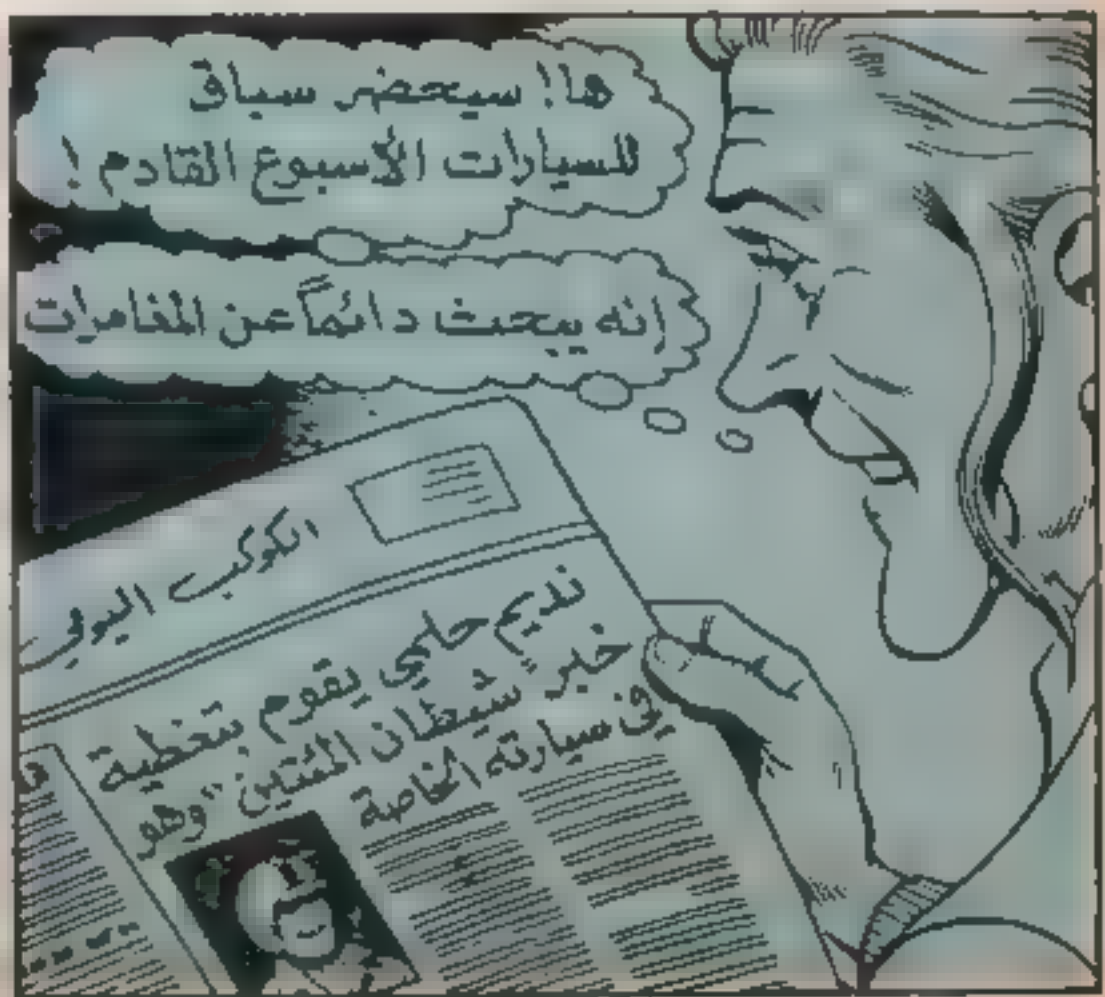 ها! سيحضر سباق
للسيارات الأسبوع القادم!
إنه يبحث دائماً عن المغامرات
الكوكب اليومي
نديم حلمي يقوم بتغطية
خبر "شيطان المئتين" وهو
في سيارته الخاصة